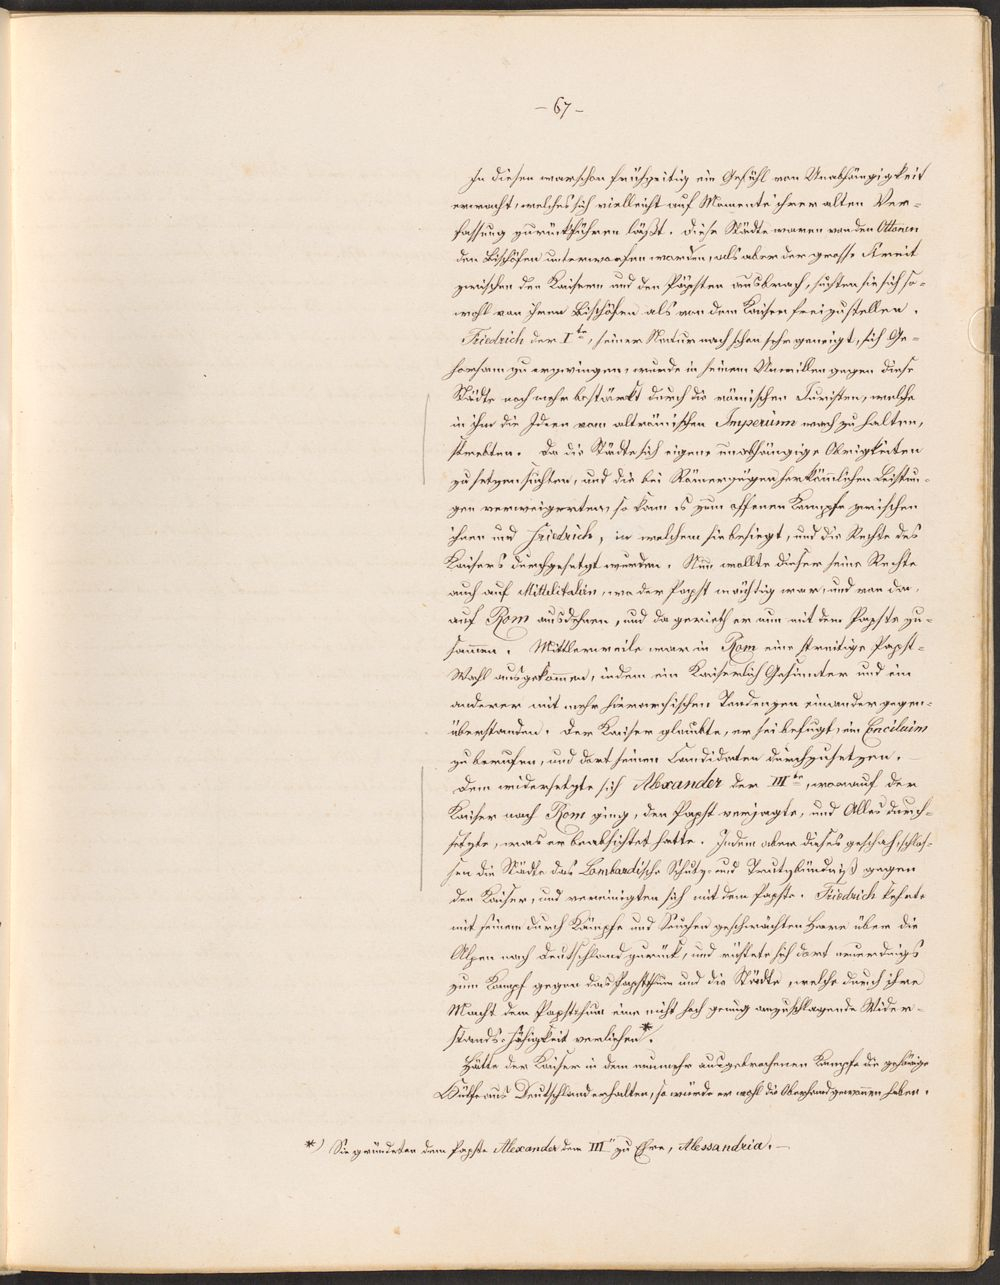 - 67 -
In diesen war schon frühzeitig ein Gefühl von Unabhängigkeit
erwacht, welches sich vielleicht auf Momente ihrer alten Ver=
fassung zurückführen läßt. Diese Städte waren von den Ottonen
den Bischöfen unterworfen worden, als aber der grosse Streit
zwischen den Kaisern und den Päpsten ausbrach, suchten sie sich so=
wohl von ihren Bischöfen als von dem Kaiser frei zu stellen.
Friedrich der I te, seiner Natur nach schon sehr geneigt, sich Ge=
horsam zu erzwingen, wurde in seinem Unwillen gegen diese
Städte noch mehr bestärkt durch die römischen Juristen, welche
in ihm die Ideen vom altrömischen Imperium wach zu halten,
strebten. Da die Städte sich eigene unabhängige Obrigkeiten
zu setzen suchten, und die bei Römerzügen herkömmlichen Leistun=
gen verweigerten, so kam es zum offenen Kampfe zwischen
ihnen und Friedrich, in welchem sie besiegt, und die Rechte des
Kaisers durchgesetzt wurden. Nun wollte dieser seine Rechte
auch auf Mittelitalien, wo der Papst mächtig war, und von da,
auf Rom ausdehnen, und da gerieth er nun mit dem Papste zu=
sammen. Mittlerweile war in Rom eine streitige Papst=
Wahl ausgekommen, indem ein Kaiserlich Gesinnter und ein
anderer mit mehr hierarchischen Tendenzen einander gegen=
überstanden. Der Kaiser glaubte, er sei befugt, ein Concilium
zu berufen, und dort seinen Candidaten durchzusetzen. –
Dem widersetzte sich Alexander der III te, worauf der
Kaiser nach Rom ging, den Papst verjagte, und Alles durch=
setzte, was er beabsichtet hatte. Indem aber dieses geschah, schlos=
sen die Städte das Lombardische Schutz= und Trutzbündniß gegen
den Kaiser, und vereinigten sich mit dem Papste. Friedrich kehrte
mit seinem durch Kämpfe und Seuchen geschwächten Heere über die
Alpen nach Deutschland zurück, und rüstete sich dort neuerdings
zum Kampf gegen das Papstthum und die Städte, welche durch ihre
Macht dem Papstthum eine nicht hoch genug anzuschlagende Wider=
stands=Fähigkeit verliehen *.
Hätte der Kaiser in dem nunmehr ausgebrochenen Kampfe die gehörige
Hülfe aus Deutschland erhalten, so würde er wohl die Oberhand gewonnen haben.
*) Sie gründeten dem Papste Alexander dem III n zu Ehre, Alessandria. –